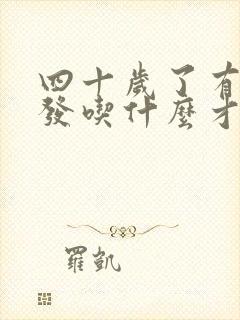 四十歲了有
發喫什麼才
羅凱